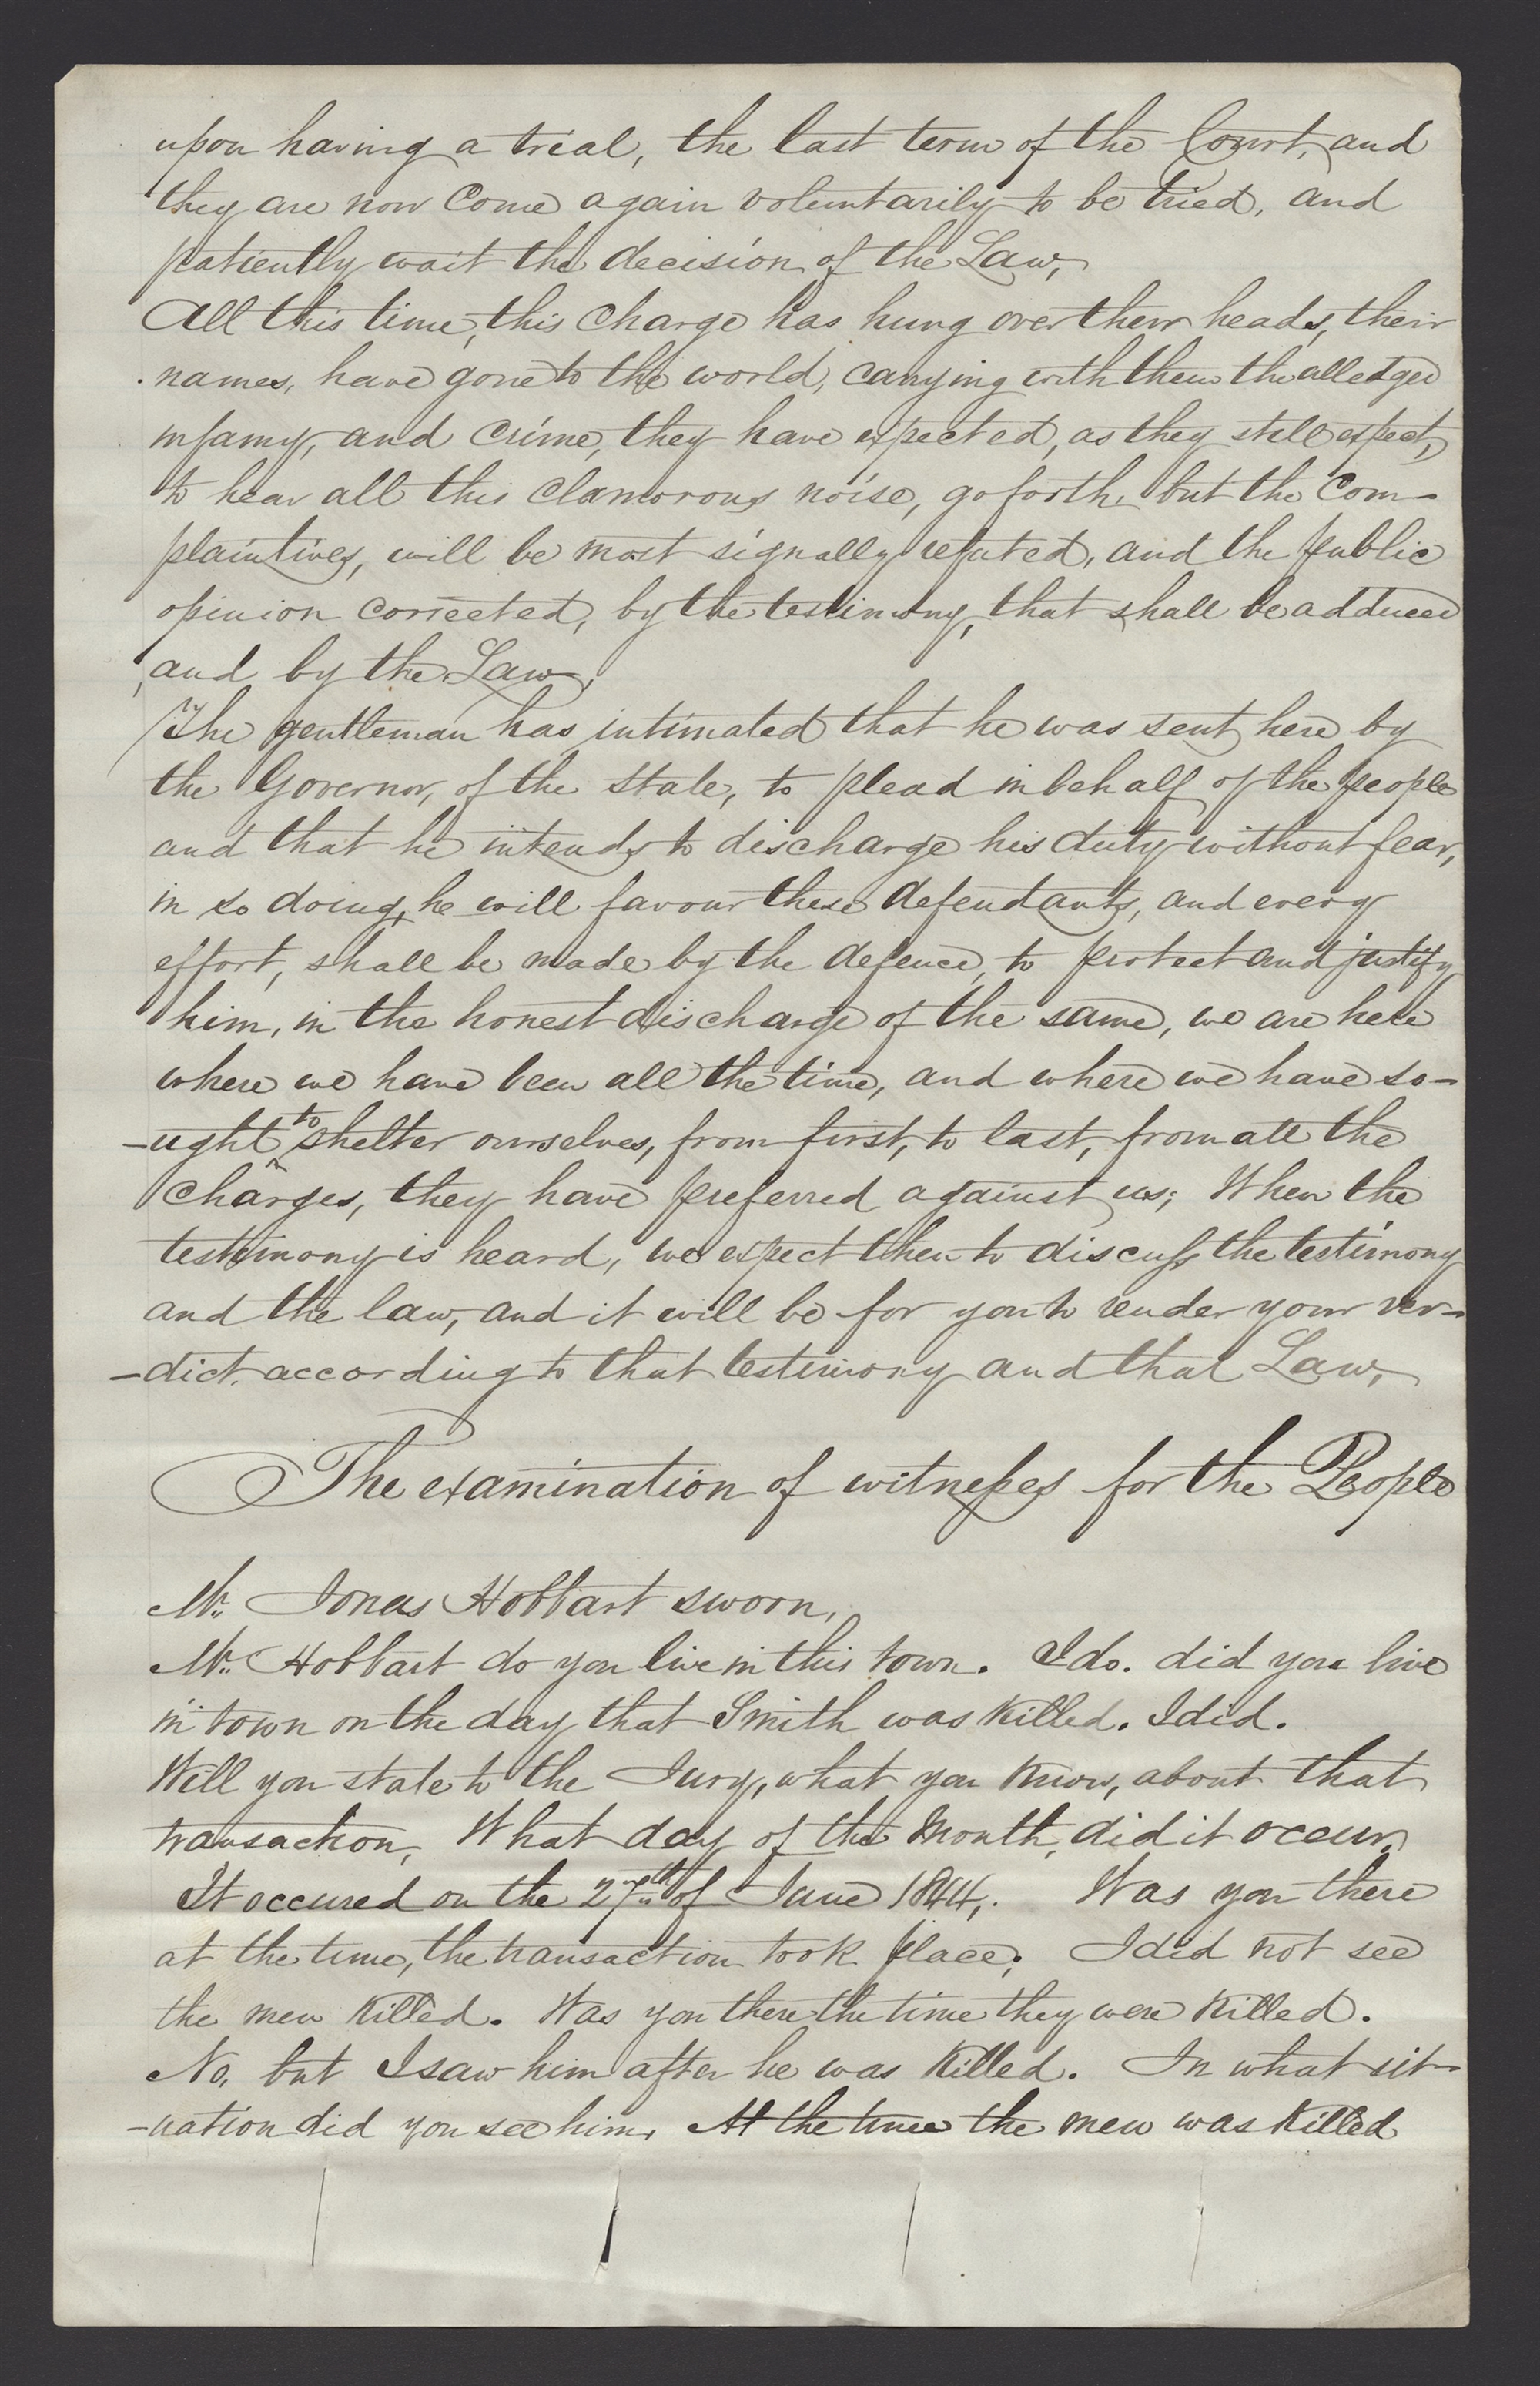 upon having a trial, the last term of the Court, and
they are now Come again voluntarily to be tried, and
patiently wait the decision of the Law,
All this time, this Charge has hung over their heads, their
names, have gone to the world, carrying with them the alledged
infamy, and crime, they have expected, as they still expect,
to hear all this Clamorous noise, go forth, but the Com-
plaintives, will be most signally refuted, and the public
opinion corrected, by the testimony, that shall be adduced
and by the Law,
The gentleman has intimated that he was sent here by
the Governor, of the State, to plead in behalf of the people
and that he intends to discharge his duty without fear,
in so doing, he will favour these defendants, and every
effort, shall be made by the defence, to protect and justify
him, in the honest discharge of the same, we are here
where we have been all the time, and where we have so-
-ught to shelter ourselves, from first, to last, from all the
Charges, they have preferred against us; When the
testimony is heard, we expect then to discuss the testimony
and the law, and it will be for you to render your ver-
-dict according to that testimony and that Law,
The examination of witnesses for the People
Mr. Jonas Hobbart sworn,
Mr. Hobbart do you live in this town. I do. did you live
in town on the day that Smith was Killed. I did.
Will you state to the Jury, what you Know, about that
transaction, What day of the Month, did it occur,
It occured on the 27th of June 1844,. Was you there
at the time, the transaction took place; I did not see
the men Killed. Was you there the time they were Killed.
No, but I saw him after he was Killed. In what sit-
-uation did you see him, At the time the men was Killed